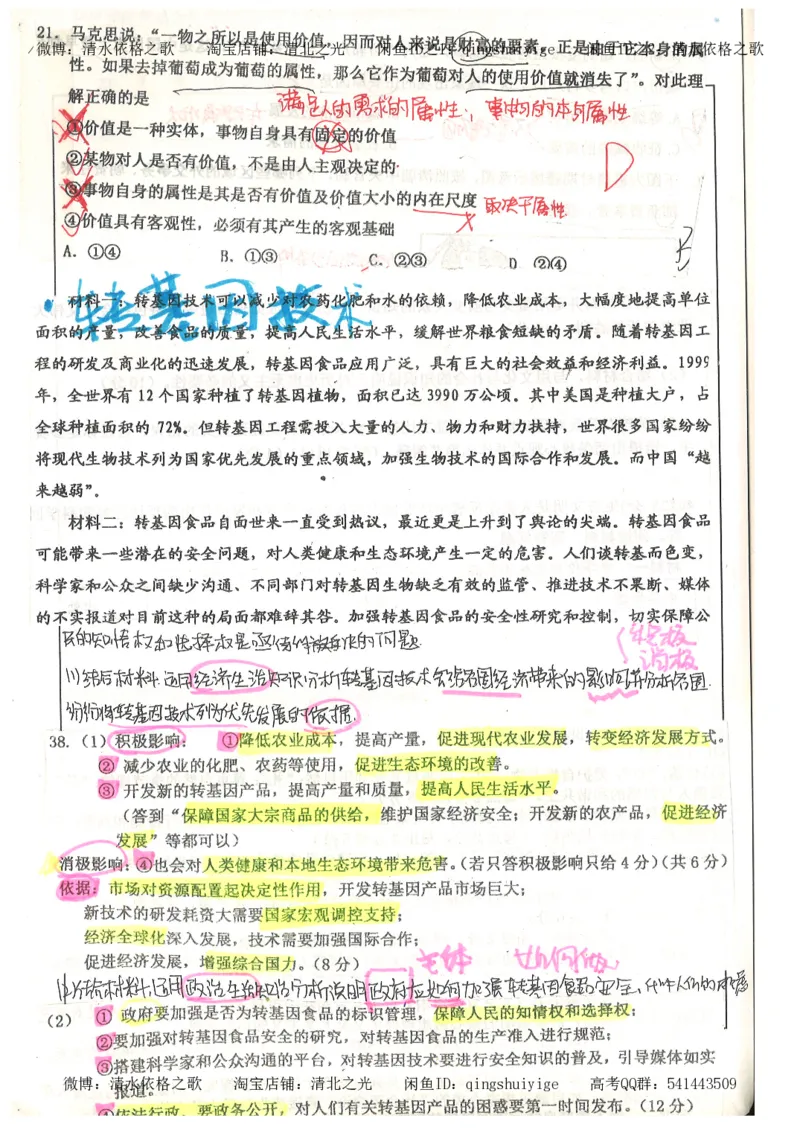 21. 马克思说：“一物之所以是使用价值，因而对人来说是财富的要素，正是由于它本身的属
微博：清水依格之歌 淘宝店铺：清北之光 闲鱼ID：qingshuiyige 依格之歌
性。如果去掉葡萄成为葡萄的属性，那么它作为葡萄对人的使用价值就消失了”。对此理
解正确的是
满足人的需求的属性；事物的本身属性
①价值是一种实体，事物自身具有固定的价值
②某物对人是否有价值，不是由人主观决定的
D
③事物自身的属性是其是否有价值及价值大小的内在尺度
取决于属性
④价值具有客观性，必须有其产生的客观基础
A. ①④ B. ①③ C. ②③ D ②④
转基因技术
材料一：转基因技术可以减少对农药化肥和水的依赖，降低农业成本，大幅度地提高单位
面积的产量，改善食品的质量，提高人民生活水平，缓解世界粮食短缺的矛盾。随着转基因工
程的研发及商业化的迅速发展，转基因食品应用广泛，具有巨大的社会效益和经济利益。1999
年，全世界有 12 个国家种植了转基因植物，面积已达 3990 万公顷。其中美国是种植大户，占
全球种植面积的 72%。但转基因工程需投入大量的人力，物力和财力扶持，世界很多国家纷纷
将现代生物技术列为国家优先发展的重点领域，加强生物技术的国际合作和发展。而中国“越
来越弱”。
材料二：转基因食品自面世来一直受到热议，最近更是上升到了舆论的尖端。转基因食品
可能带来一些潜在的安全问题，对人类健康和生态环境产生一定的危害。人们谈转基而色变，
科学家和公众之间缺少沟通、不同部门对转基因生物缺乏有效的监管、推进技术不果断、媒体
的不实报道对目前这种的局面都难辞其咎。加强转基因食品的安全性研究和控制，切实保障公
民的知情权和选择权是亟待解决的问题
积极
消极
(1)结合材料一运用经济生活知识分析转基因技术会给各国经济带来的影响并分析各国
纷纷将转基因技术列为优先发展的依据.
38. （1）积极影响： ①降低农业成本，提高产量，促进现代农业发展，转变经济发展方式。
② 减少农业的化肥、农药等使用，促进生态环境的改善。
③ 开发新的转基因产品，提高产量和质量，提高人民生活水平。
（答到“保障国家大宗商品的供给，维护国家经济安全；开发新的农产品，促进经济
发展”等都可以）
消极影响：④也会对人类健康和本地生态环境带来危害。（若只答积极影响只给 4 分）（共 6 分）
依据：市场对资源配置起决定性作用，开发转基因产品市场巨大；
新技术的研发耗资大需要国家宏观调控支持；
经济全球化深入发展，技术需要加强国际合作；
促进经济发展，增强综合国力。（8 分）
主体 如何做
材料运用政治生活知识分析说明政府应如何加强转基因食品安全、
（2） ① 政府要加强是否为转基因食品的标识管理，保障人民的知情权和选择权；
②要加强对转基因食品安全的研究，对转基因食品的生产准入进行规范；
③搭建科学家和公众沟通的平台，对转基因技术要进行安全知识的普及，引导媒体如实
报道。
微博：清水依格之歌 淘宝店铺：清北之光 闲鱼ID：qingshuiyige 高考QQ群：541443509
④依法行政，要政务公开，对人们有关转基因产品的困惑要第一时间发布。（12 分）